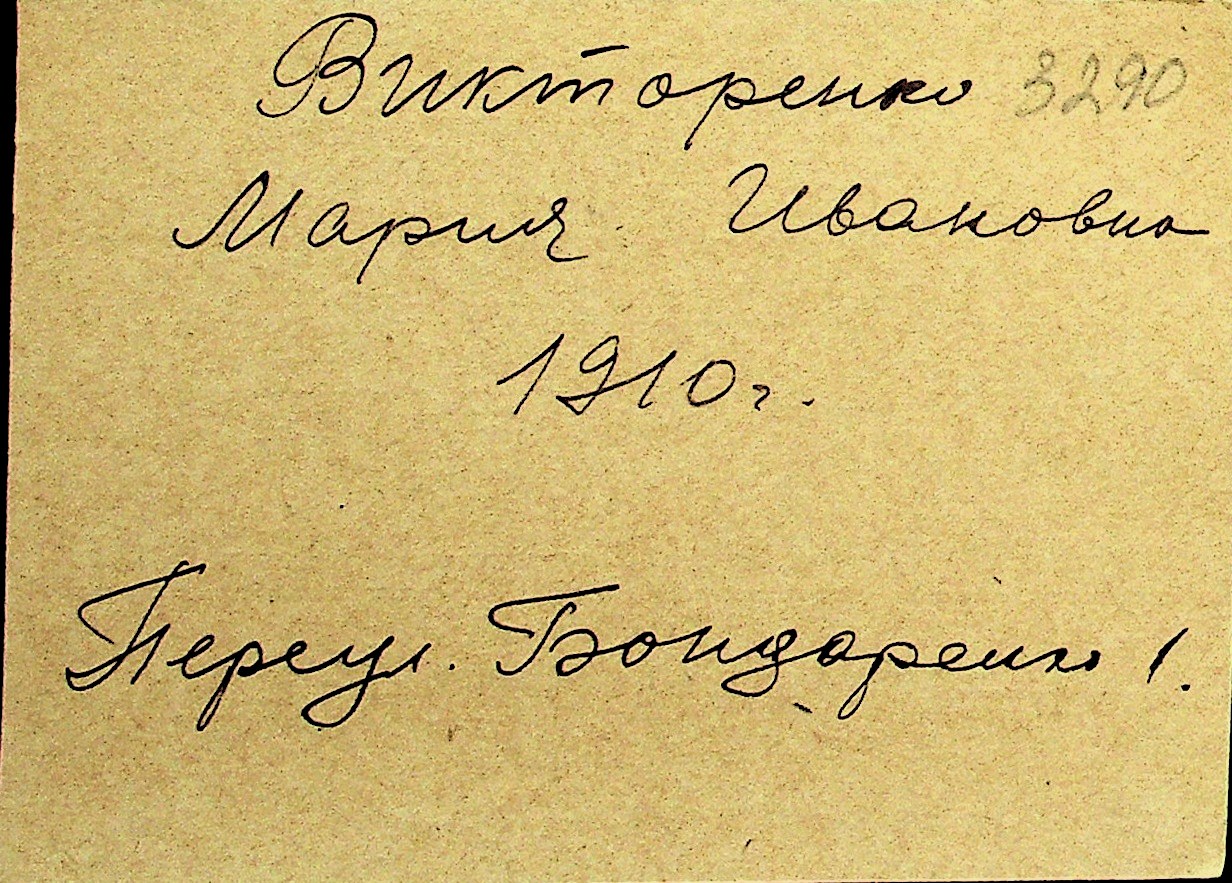 Викторенко 3290
Мария Ивановна
1910г.
Переул. Бондаренко 1.